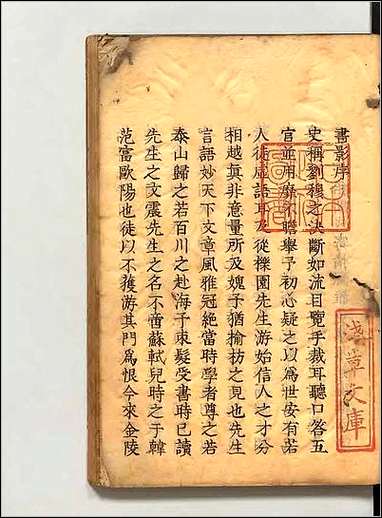 書影序
史稱劉穆之決斷如流目覽手裁耳聽口答五
官並用靡不贍舉予初心疑之以爲世安有若
人徒虛語耳及從櫟園先生游始信人之才分
相越眞非意量所及媿予猶揄枋之見也先生
言語妙天下文章風雅冠絶當時學者尊之若
泰山歸之若百川之赴海予束髮受書時已讀
先生之文震先生之名不啻蘇軾兒時之于韓
范富歐陽也徒以不獲游其門爲恨今來金陵
淺草文庫